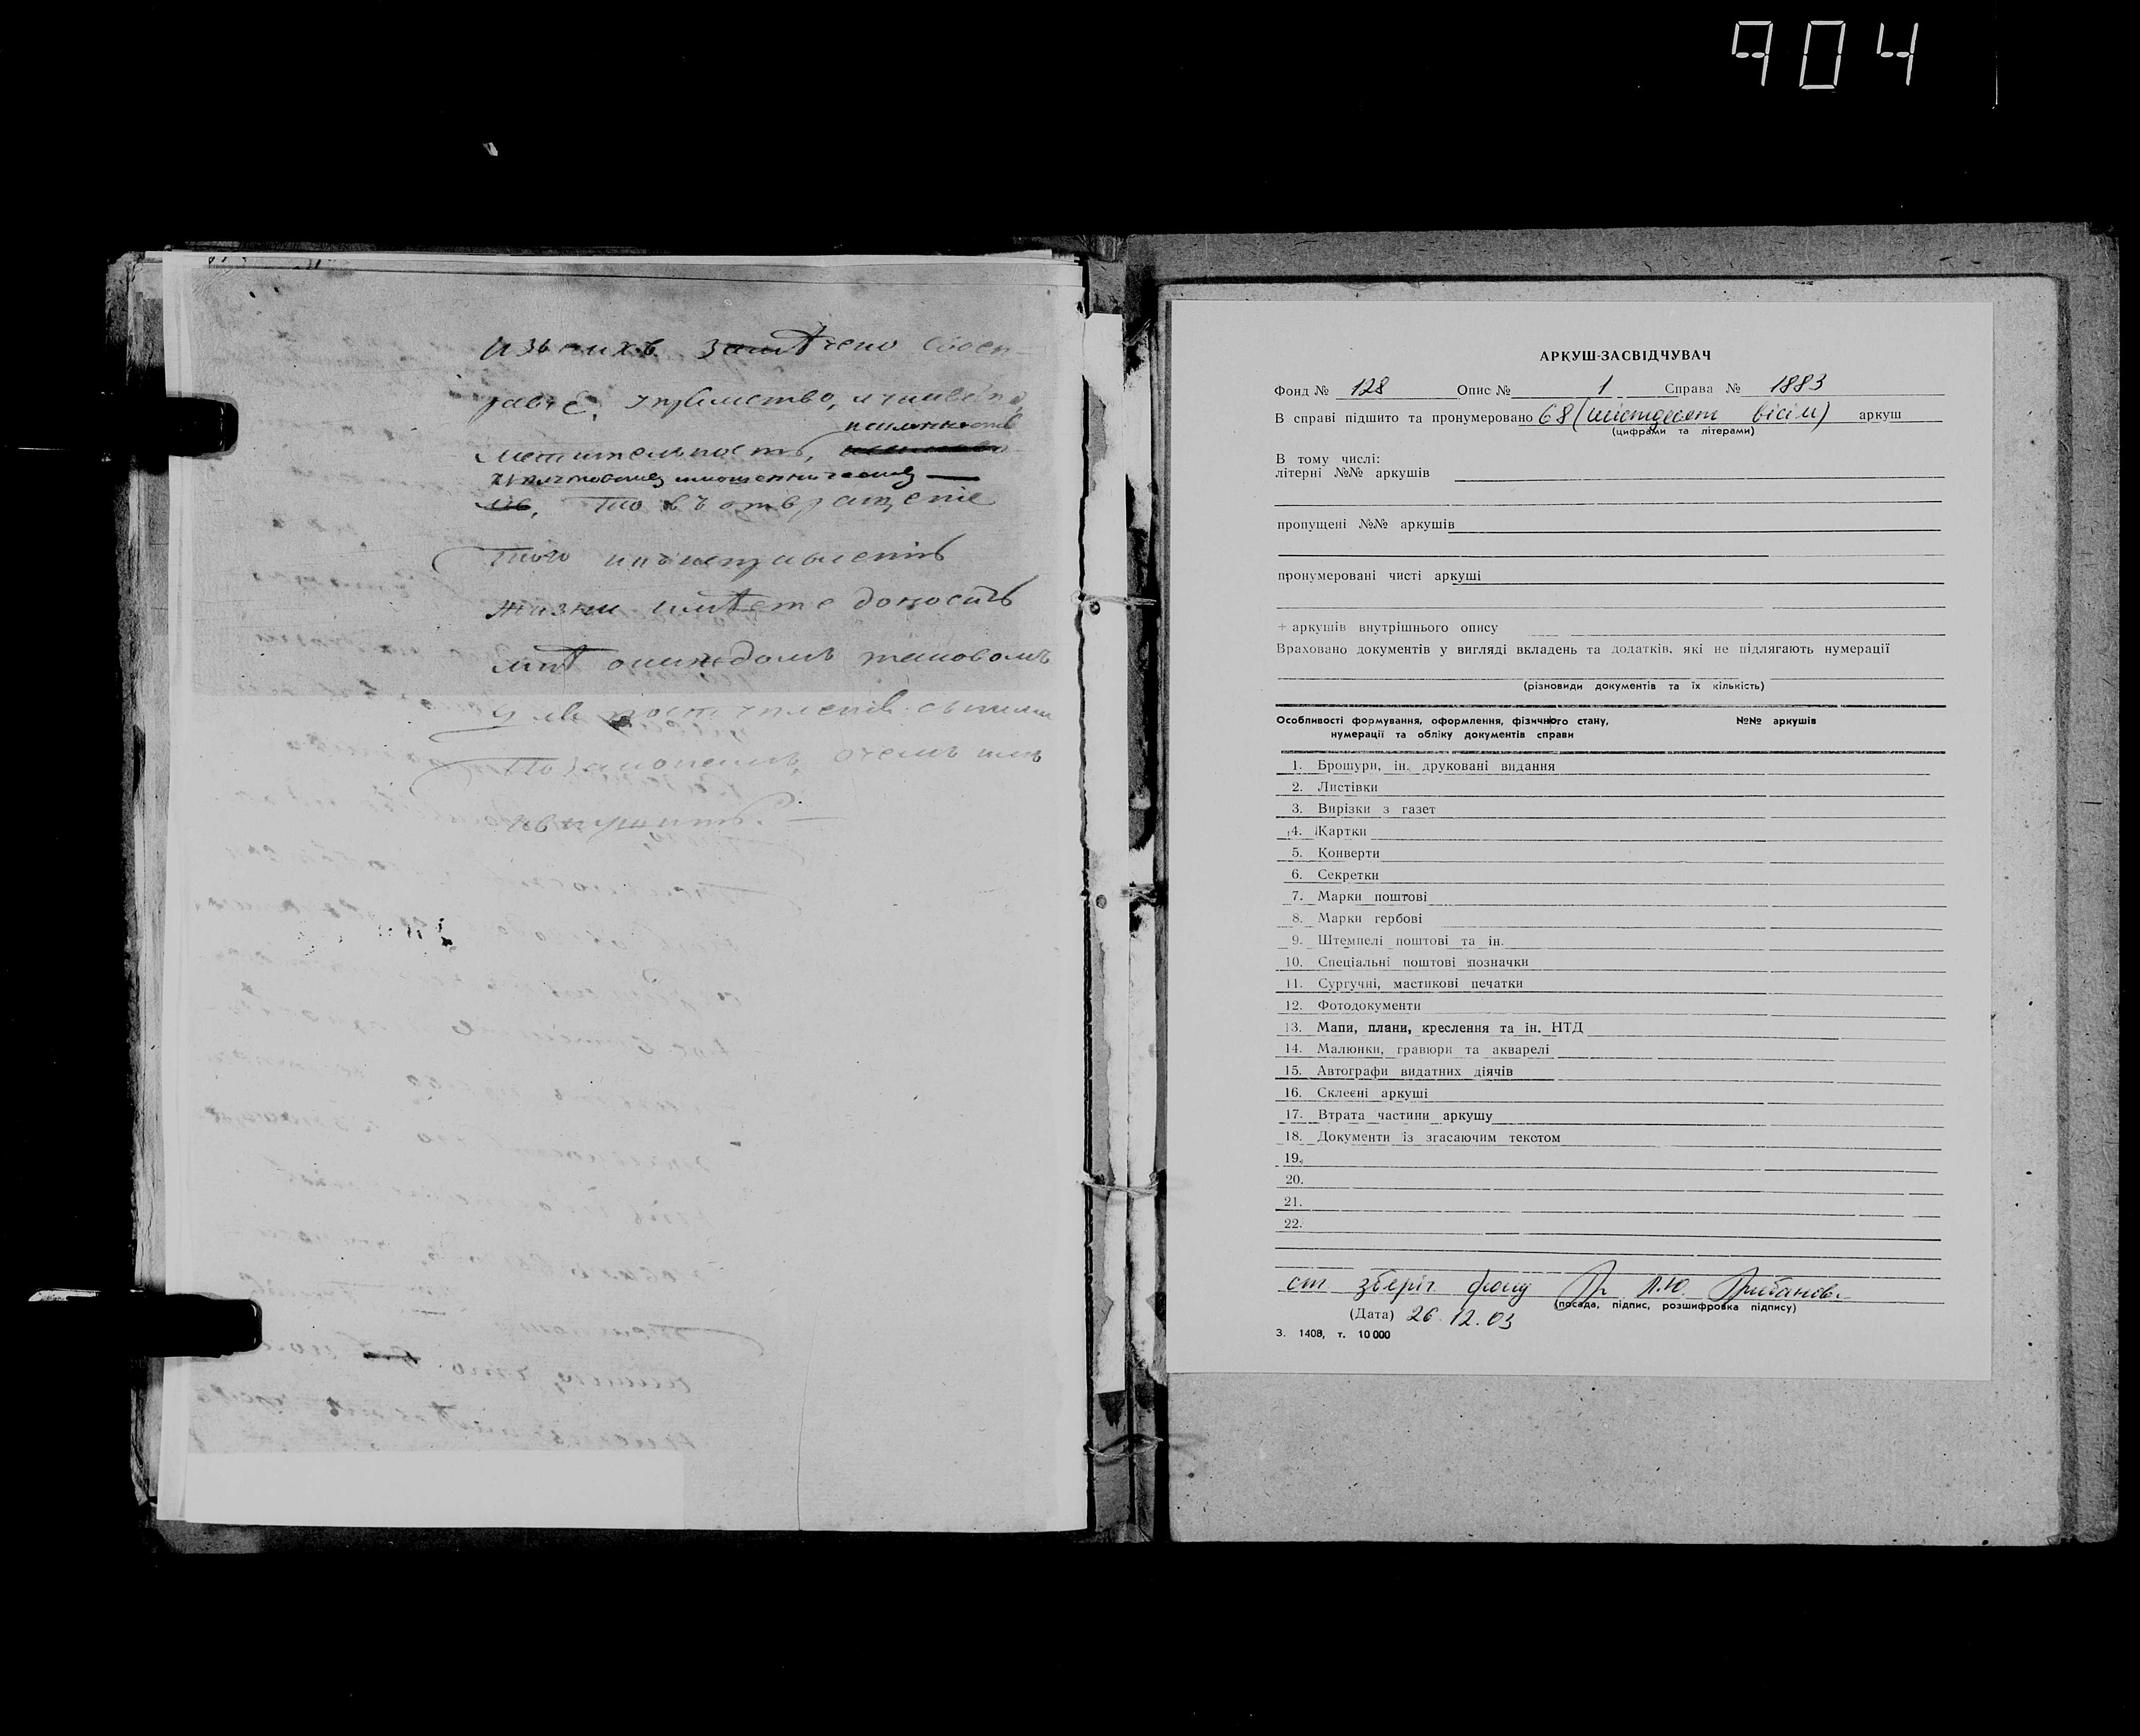 904
изъ нихъ замѣчено своен-
равіе, упрямство,
мстительность,
то въ отвращеніе
того
жизни имѣете доносить
мнѣ о каждомъ таковомъ
съ ними
по законамъ, о чемъ имъ
и внушить.
АРКУШ-ЗАСВІДЧУВАЧ
Фонд № 128 Опис № 1 Справа № 1883
В справі підшито та пронумеровано 68 (шістдесят вісім) аркуш
(цифрами та літерами)
В тому числі:
літерні №№ аркушів
пропущені №№ аркушів
пронумеровані чисті аркуші
+ аркушів внутрішнього опису
Враховано документів у вигляді вкладень та додатків, які не підлягають нумерації
(різновиди документів та їх кількість)
Особливості формування, оформлення, фізичного стану, №№ аркушів
нумерації та обліку документів справи
1. Брошури, ін. друковані видання
2. Листівки
3. Вирізки з газет
4. Картки
5. Конверти
6. Секретки
7. Марки поштові
8. Марки гербові
9. Штемпелі поштові та ін.
10. Спеціальні поштові позначки
11. Сургучні, мастикові печатки
12. Фотодокументи
13. Мапи, плани, креслення та ін. НТД
14. Малюнки, гравюри та акварелі
15. Автографи видатних діячів
16. Склеєні аркуші
17. Втрата частини аркушу
18. Документи із згасаючим текстом
19.
20.
21.
22.
ст. зберіг. фонд
(посада, підпис, розшифровка підпису)
(Дата) 26.12.03
З. 1408, т. 10 000